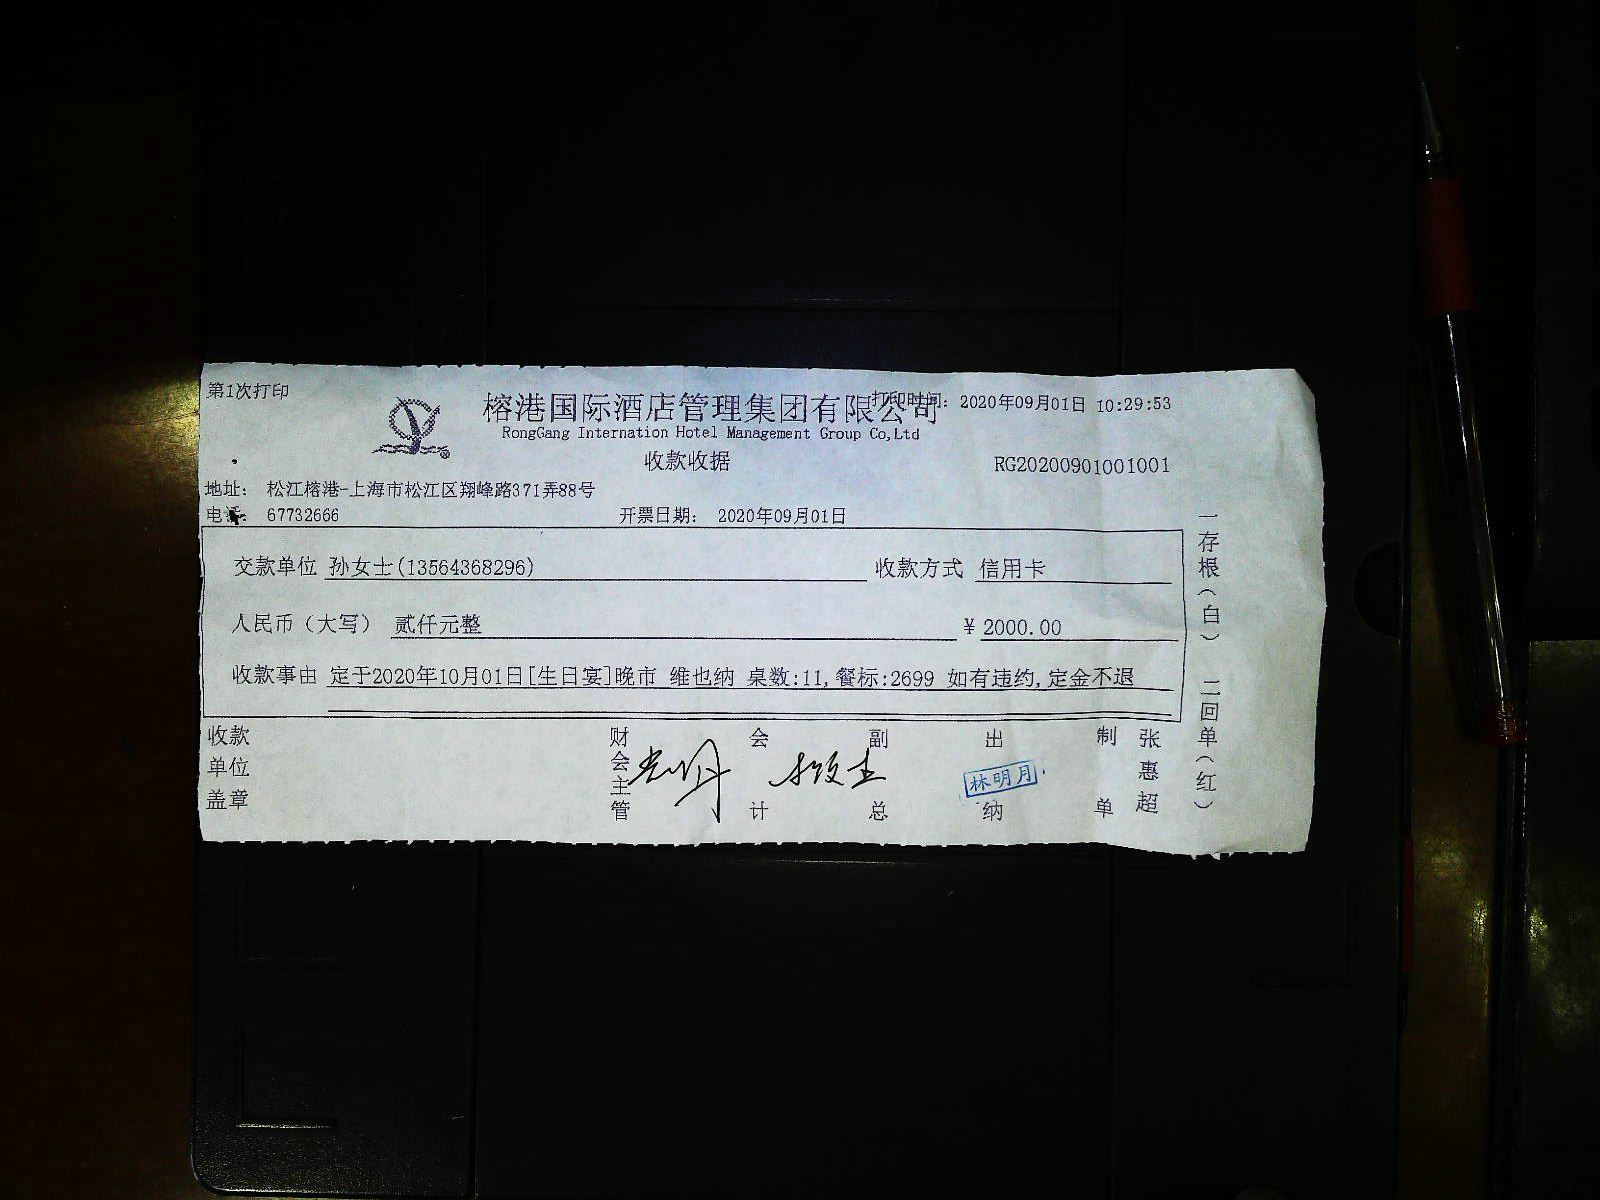 第1次打印
榕港国际酒店管理集团有限公司
打印时间: 2020年09月01日 10:29:53
RongGang Internation Hotel Management Group Co,Ltd
收款收据
RG20200901001001
地址: 松江榕港-上海市松江区翔峰路371弄88号
电话: 67732666
开票日期: 2020年09月01日
交款单位 孙女士(13564368296) 收款方式 信用卡
人民币（大写） 贰仟元整 ¥ 2000.00
收款事由 定于2020年10月01日[生日宴]晚市 维也纳 桌数:11,餐标:2699 如有违约,定金不退
收款单位盖章
财会主管
会计
副总
出纳
林明月
制单
张惠超
一存根（白） 二回单（红）